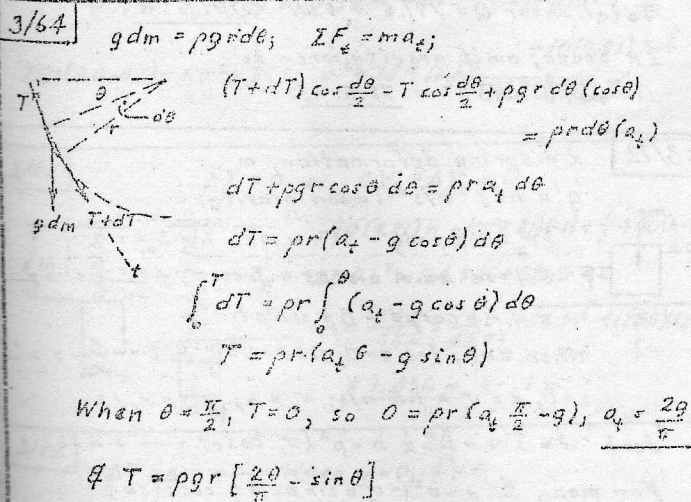 3/64
gdm = ρgrdθ; ΣF_t = ma_t;
(T+dT) cos dθ/2 - T cos dθ/2 + ρgr dθ (cosθ)
= ρrdθ(a_t)
T
θ
dθ
r
gdm
T+dT
t
dT + ρgr cosθ dθ = ρr a_t dθ
dT = ρr(a_t - g cosθ) dθ
∫_0^T dT = ρr ∫_0^θ (a_t - g cos θ) dθ
T = ρr (a_t θ - g sinθ)
When θ = π/2, T = 0, so 0 = ρr (a_t π/2 - g); a_t = 2g/π
& T = ρgr [2θ/π - sinθ]